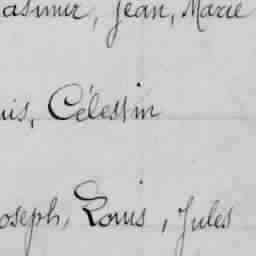 asimir, Jean, Marie
uis, Célestin
oseph, Louis, Jules